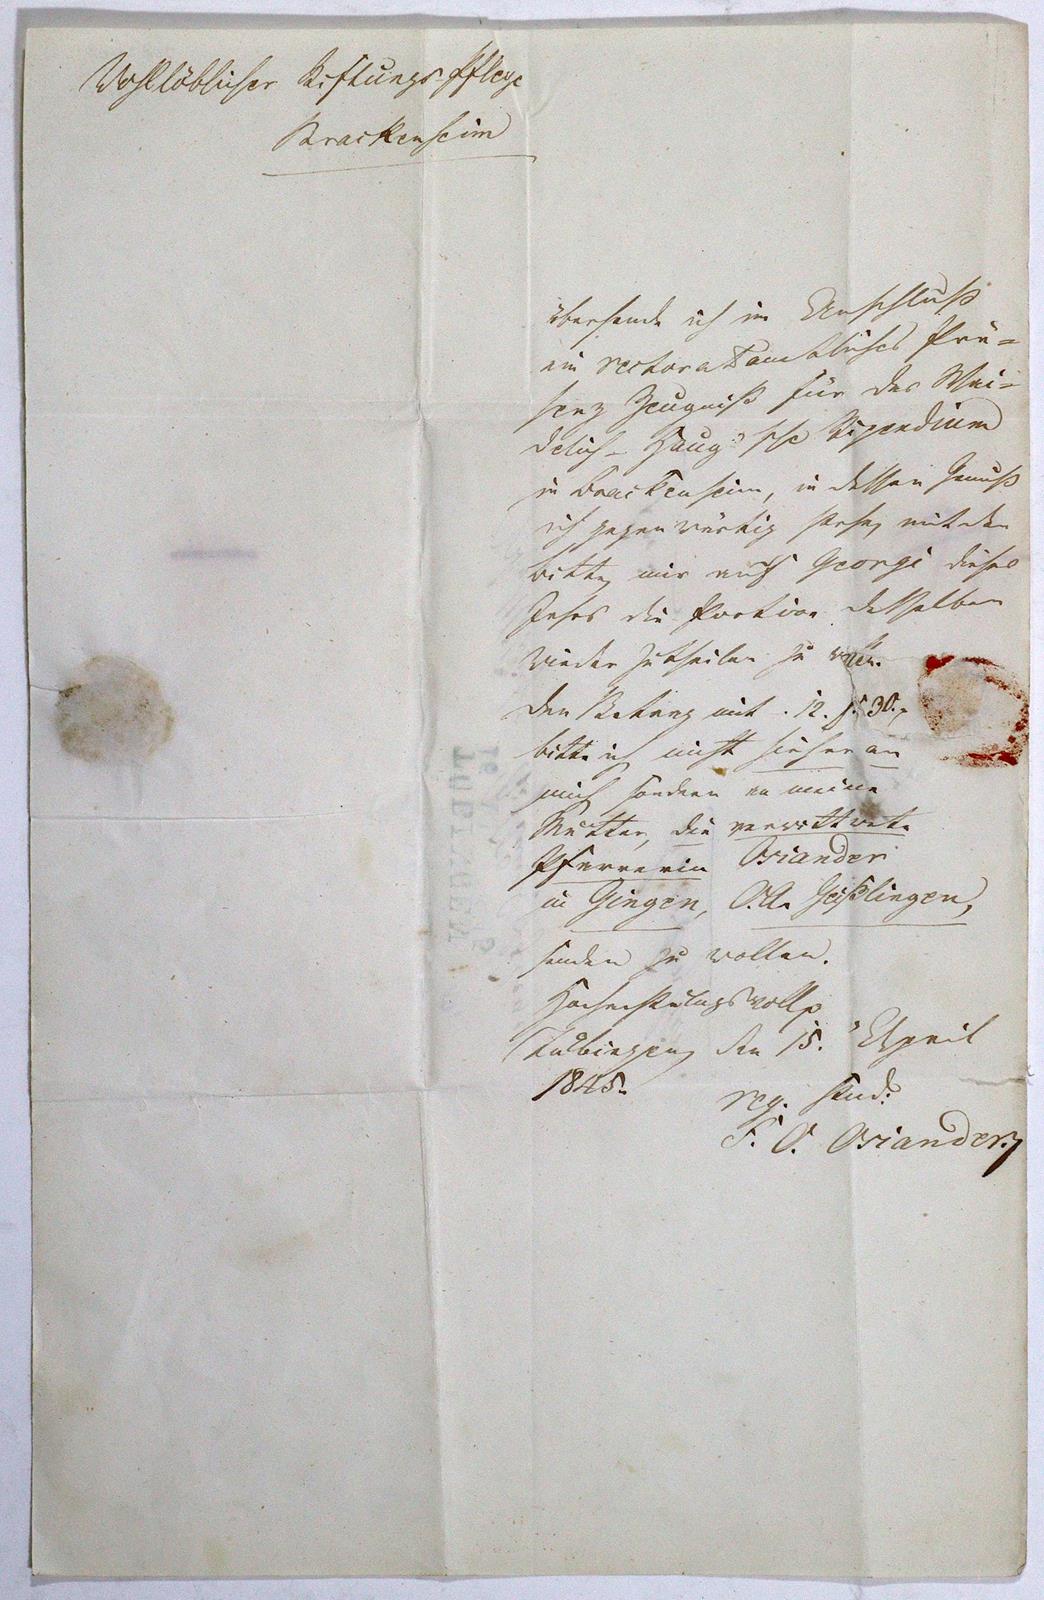 Wohllöblicher Stiftungs-Pflege
Brackenheim
übersende ich im Anschluß
ein rectoratamtliches Prä=
senz Zeugniß für das Wei=
delich-Haug'sche Stipendium
in Brackenheim, in dessen Genuß
ich gegenwärtig stehe, mit der
Bitte, mir auf Georgi dieses
Jahrs die Portion desselben
wieder zutheilen zu wollen.
Den Betrag mit 12. f. 30.
bitte ich nicht hieher an
mich sondern an meine
Mutter, die verwittwete
Pfarrerin Osiander
in Gingen, O.A. Geißlingen,
senden zu wollen.
Hochachtungsvollst
Tübingen, den 15. April
1845.
reg. stud.
F. O. Osiander.
TUBINGEN